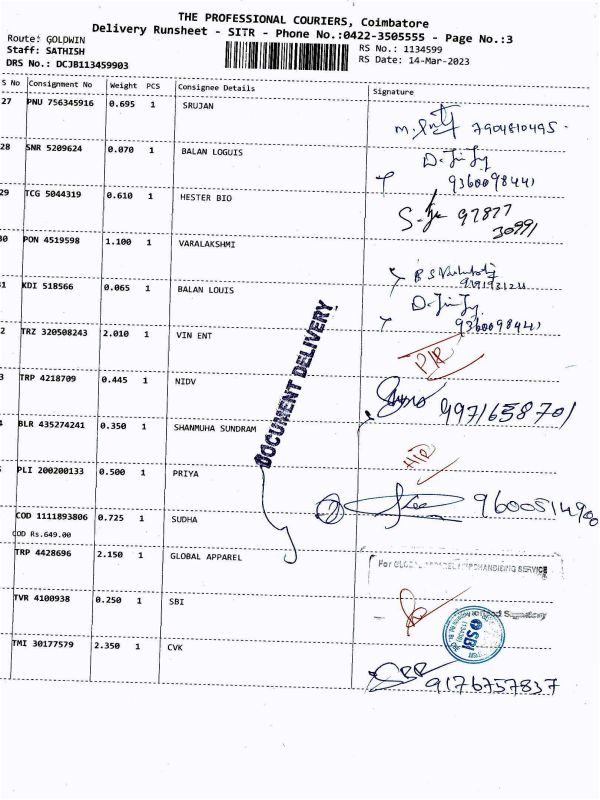 THE PROFESSIONAL COURIERS, Coimbatore
Delivery Runsheet - SITR - Phone No.:0422-3505555 - Page No.:3
Route: GOLDWIN
Staff: SATHISH
DRS No.: DCJB113459903
RS No.: 1134599
RS Date: 14-Mar-2023
S No Consignment No Weight PCS Consignee Details Signature
27 PNU 756345916 0.695 1 SRUJAN
7904810495
28 SNR 5209624 0.070 1 BALAN LOGUIS
9360098441
29 TCG 5044319 0.610 1 HESTER BIO
97877
30991
30 PON 4519598 1.100 1 VARALAKSHMI
31 KDI 518566 0.065 1 BALAN LOUIS
9360098441
2 TRZ 320508243 2.010 1 VIN ENT
3 TRP 4218709 0.445 1 NIDV
9971658701
BLR 435274241 0.350 1 SHANMUHA SUNDRAM
PLI 200200133 0.500 1 PRIYA
COD 1111893806 0.725 1 SUDHA
COD Rs.649.00
TRP 4428696 2.150 1 GLOBAL APPAREL
For GLOBAL APPAREL MERCHANDISING SERVICE
TVR 4100938 0.250 1 SBI
SBI
TMI 30177579 2.350 1 CVK
9176757837
DOCUMENT DELIVERY